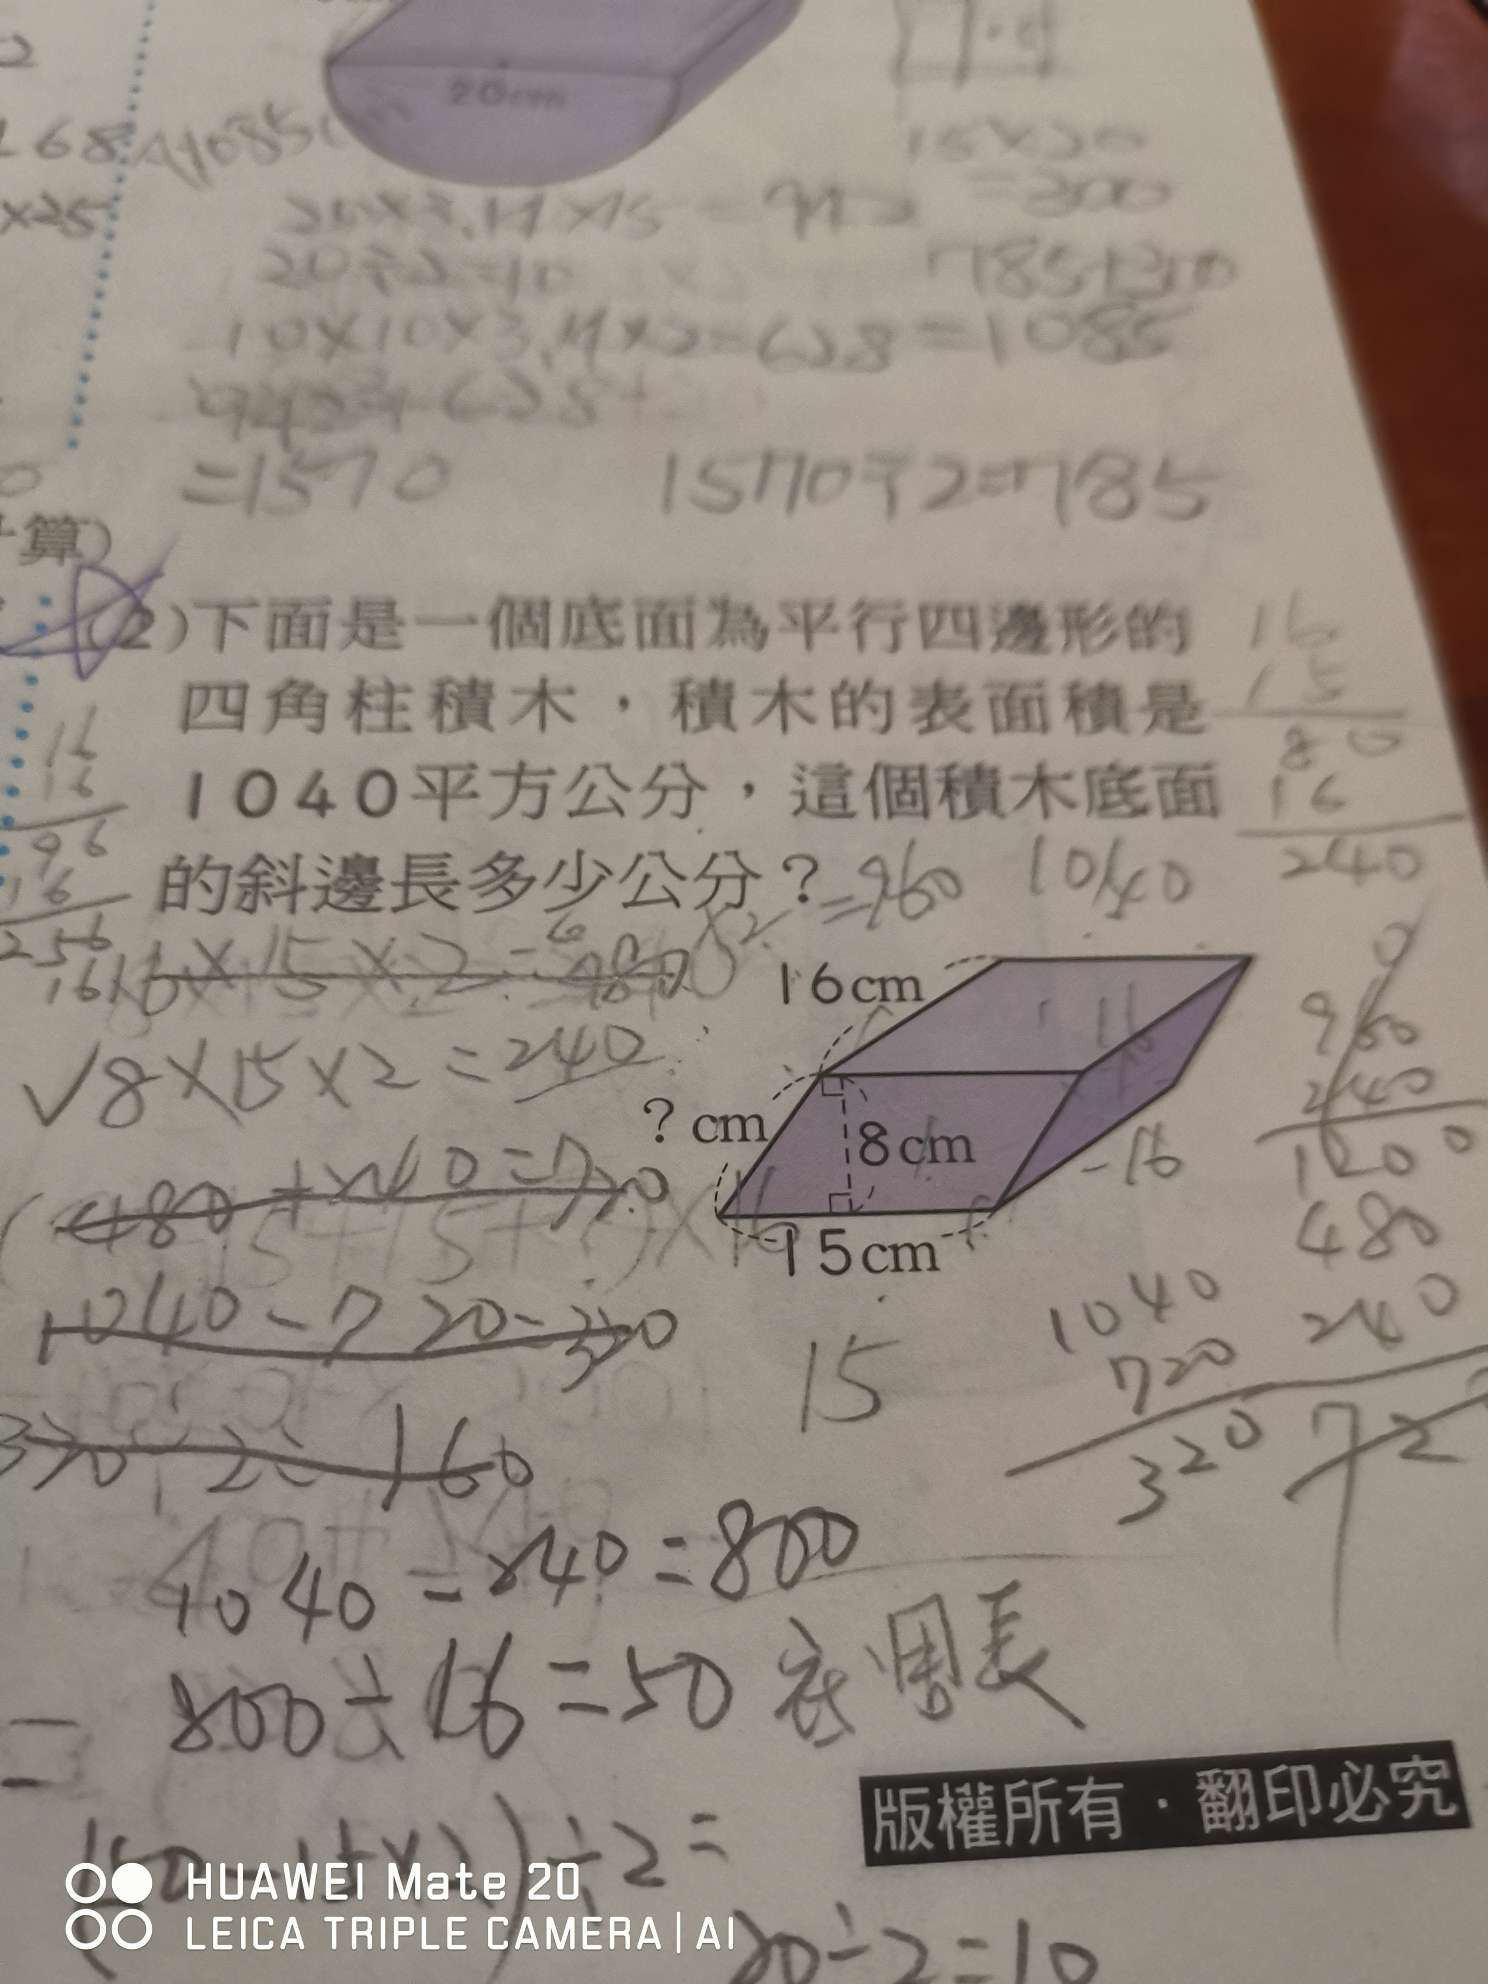 20cm
15×20
168
1085
×25
20×3.14×15=942
=300
20÷2=10
785+300
10×10×3.14×2=628
=1085
942+628
=1570
1570÷2=785
算)
(2)下面是一個底面為平行四邊形的
四角柱積木，積木的表面積是
1040平方公分，這個積木底面
的斜邊長多少公分？
16
15
80
16
240
16
16
96
16
256
=960
1040
16×15×2=480
16cm
8×15×2=240
? cm
8cm
15cm
960
240
1200
-16
480+240=720
480
240
720
1040-720=320
1040
720
320
15
320÷2=160
1040-240=800
800÷16=50 底周長
(50-15×2)÷2=
20÷2=10
版權所有·翻印必究
HUAWEI Mate 20
LEICA TRIPLE CAMERA | AI